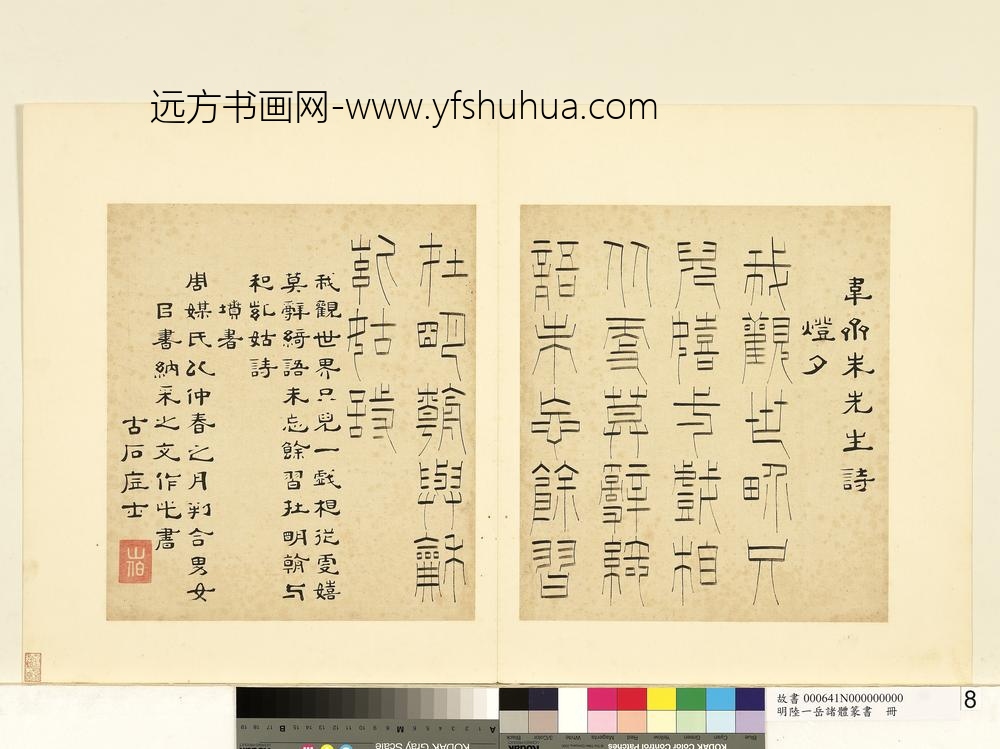 远方书画网-www.yfshuhua.com
韋齋朱先生詩
燈夕
我觀世界只
兒嬉与戲相
從雩莫辭綺
語未忘餘習
杜明翰與龢
姑詩
我觀世界只兒一戲想從雩嬉
莫辭綺語未忘餘習杜明翰与
和姑詩
墳書
周媒氏以仲春之月判合男女
㠯書納采之文作此書
古石士
山伯
故書 000641N000000000
明陸一岳諸體篆書 冊
8
KODAK Gray Scale
KODAK Color Control Patches